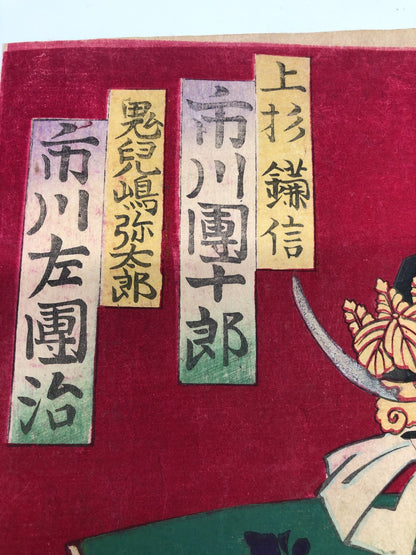 上杉鏤信
市川團十郎
鬼兒嶋弥太郎
市川左團治